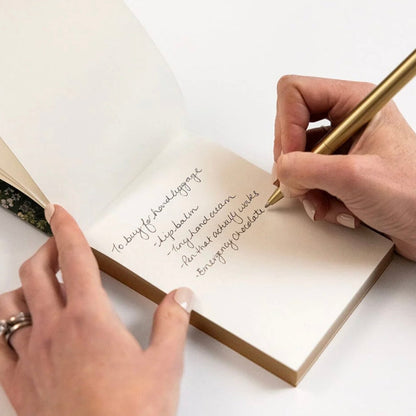 To buy for hand luggage
- Lip balm
- Tiny hand cream
- Pen that actually works
- Emergency chocolate